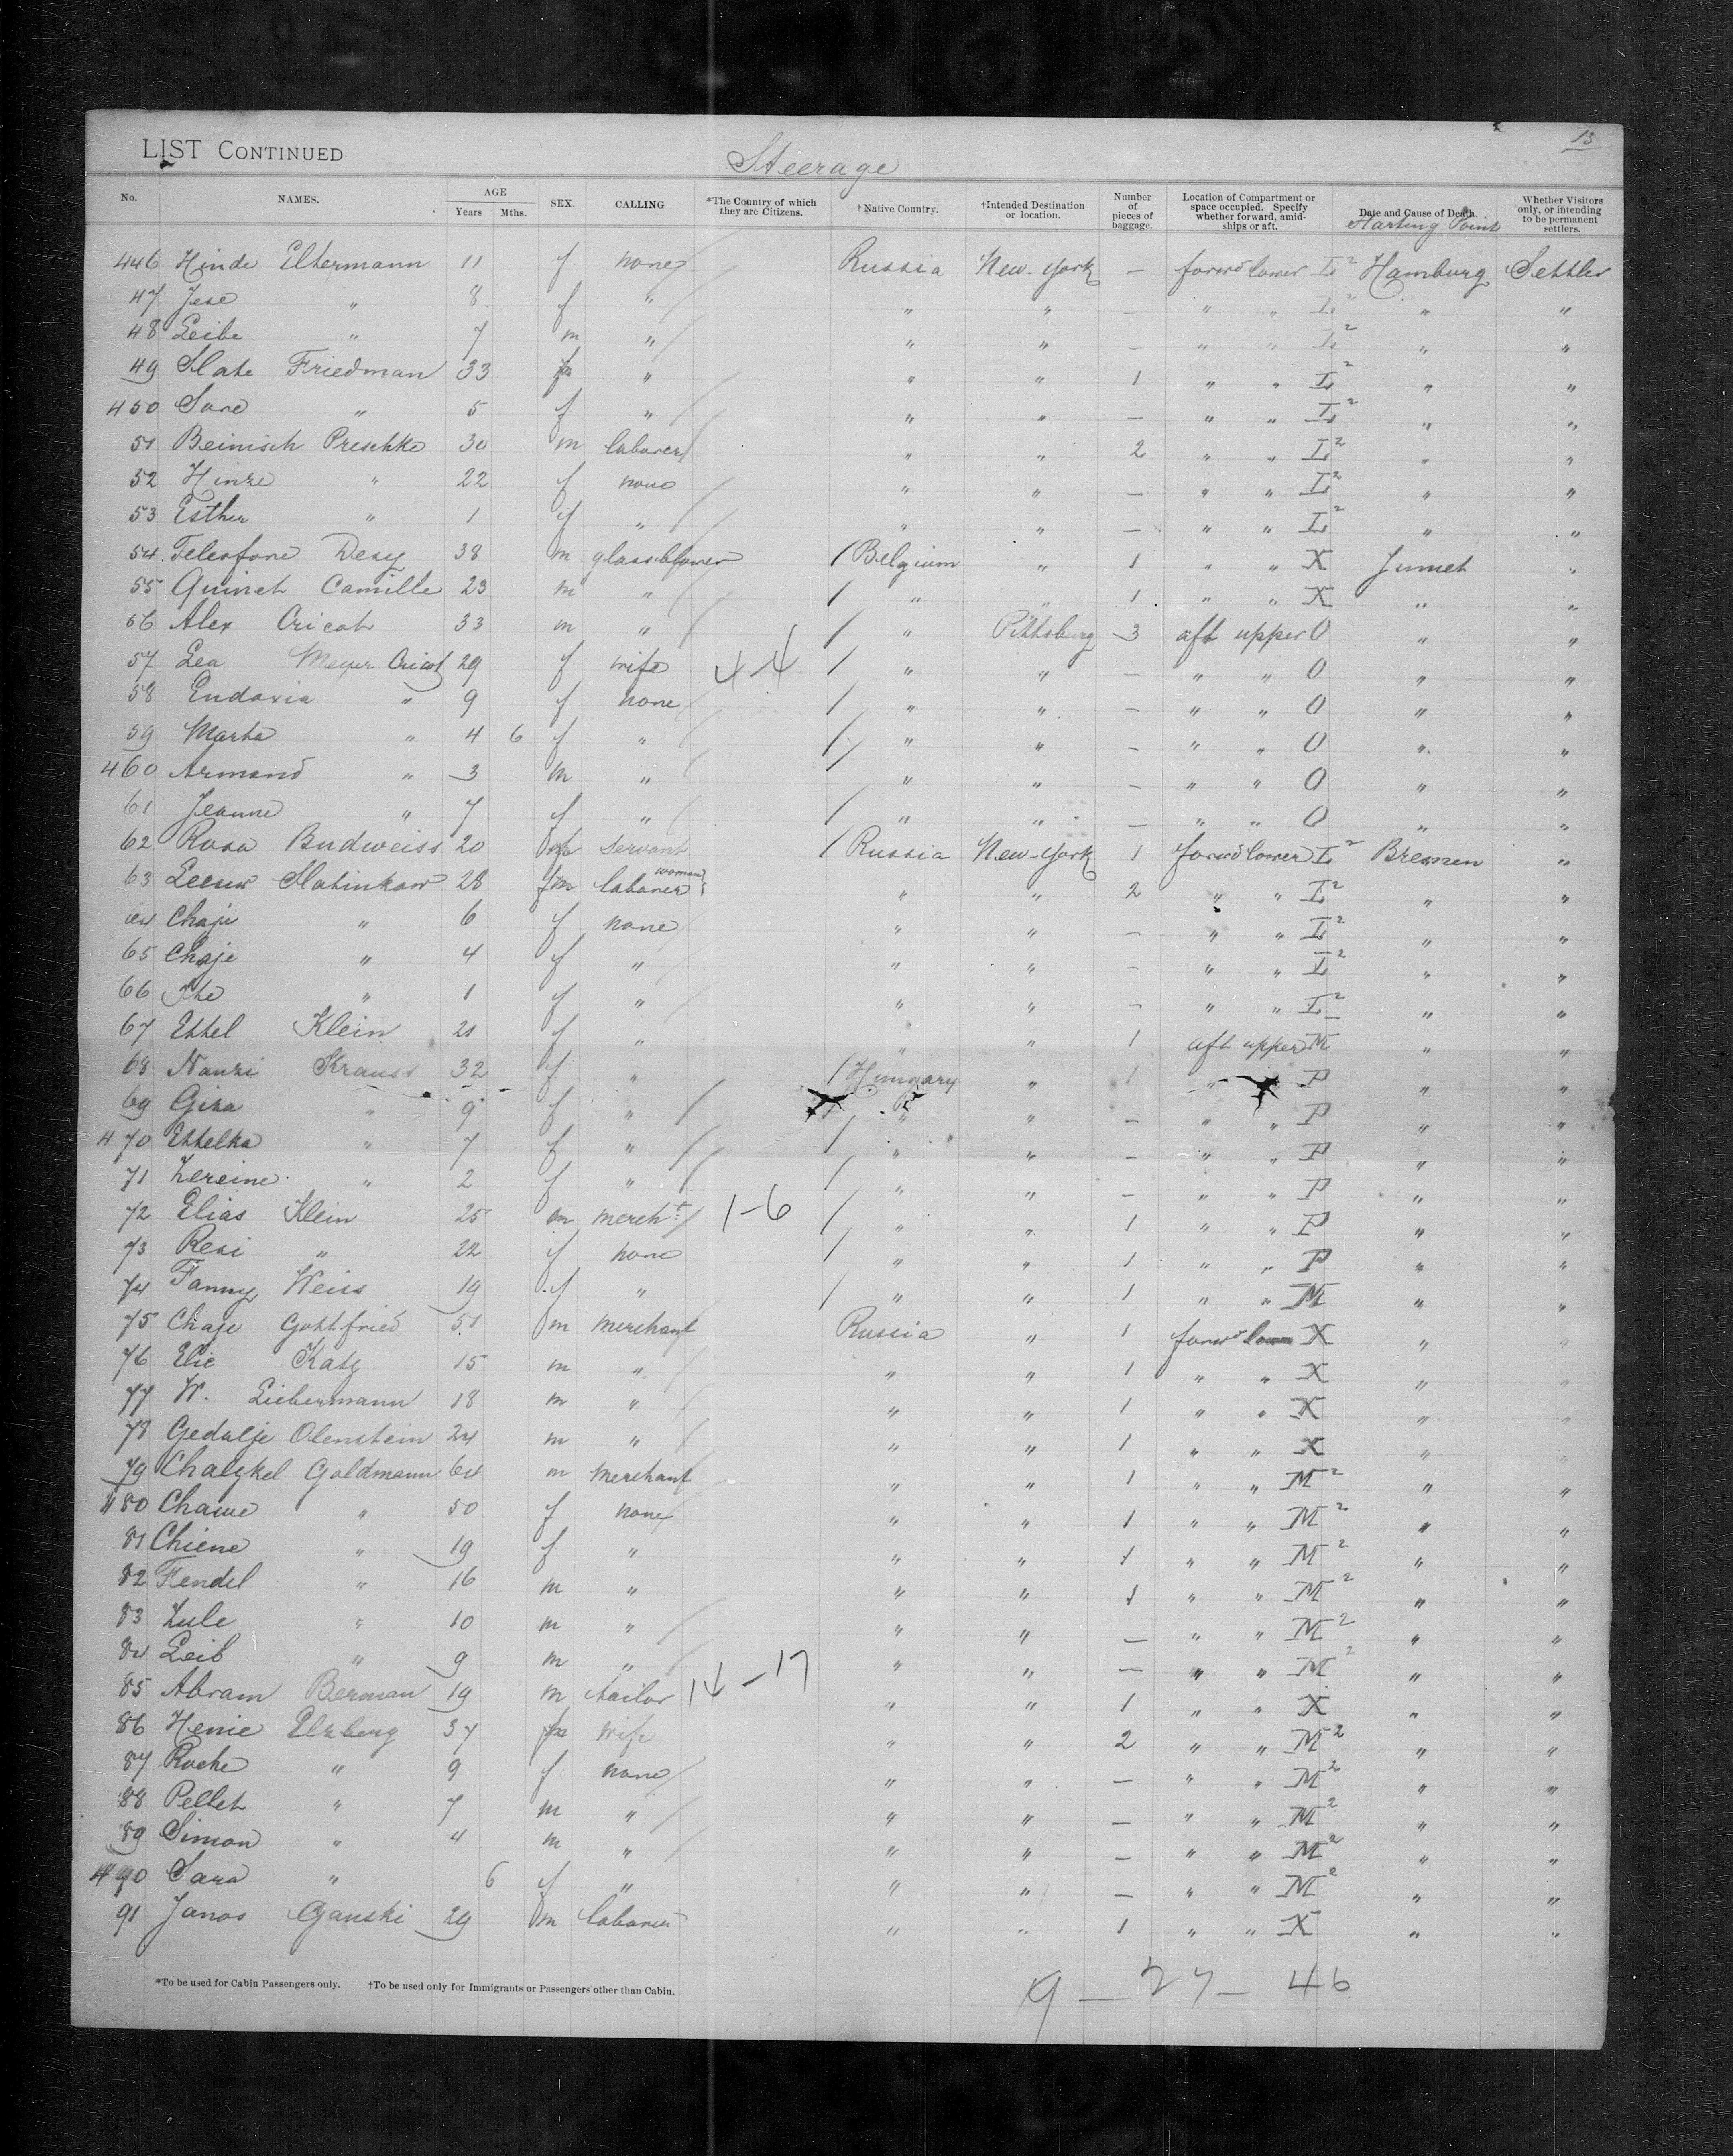 13
LIST CONTINUED
Steerage
No. NAMES. AGE Years Mths. SEX. CALLING *The Country of which they are Citizens. †Native Country. †Intended Destination or location. Number of pieces of baggage. Location of Compartment or space occupied. Specify whether forward, amidships or aft. Date and Cause of Death. Starting Point Whether Visitors only, or intending to be permanent settlers.
446 Hinde Eltermann 11 f none Russia New-York — forwd lower L² Hamburg Settler
47 Jese " 8 f " " " — " " L² " "
48 Leibe " 7 m " " " — " " L² " "
49 Slate Friedman 33 f " " " 1 " " L² " "
450 Sare " 5 f " " " — " " L² " "
51 Beinisch Preschke 30 m laborer " " 2 " " L² " "
52 Hinze " 22 f none " " — " " L² " "
53 Esther " 1 f " " " — " " L² " "
54 Telesfore Desy 38 m glassblower / Belgium " 1 " " X Jumet "
55 Quinet Camille 23 m " / " " 1 " " X " "
56 Alex Cricot 33 m " / " Pittsburg 3 aft upper O " "
57 Lea Meyer Cricot 29 f wife 4-4 / " " — " " O " "
58 Eudoxia " 9 f none / " " — " " O " "
59 Marta " 4 6 f " / " " — " " O " "
460 Armand " 3 m " / " " — " " O " "
61 Jeanne " 7 f " / " " — " " O " "
62 Rosa Budweiss 20 f servant / Russia New-York 1 forwd lower L² Bremen "
63 Slatinkow 28 f laborer woman " " 2 " " L² " "
64 Chaje " 6 f none " " — " " L² " "
65 Chaje " 4 f " " " — " " L² " "
66 Ite " 1 f " " " — " " L² " "
67 Ettel Klein 21 f " " " 1 aft upper M " "
68 Nanzi Krauss 32 f " / Hungary " 1 " " P " "
69 Giza " 9 f " / " " — " " P " "
470 Ettelka " 7 f " / " " — " " P " "
71 Zereine " 2 f " / " " — " " P " "
72 Elias Klein 25 m mercht 1-6 / " " 1 " " P " "
73 Resi " 22 f none / " " 1 " " P " "
74 Fanny Weiss 19 f " / " " 1 " " M " "
75 Chaje Gottfried 51 m merchant Russia " 1 forwd lower X " "
76 Elie Katz 15 m " " " 1 " " X " "
77 W. Liebermann 18 m " " " 1 " " X " "
78 Gedalje Olenstein 24 m " " " 1 " " X " "
79 Chaizkel Goldmann 64 m merchant " " 1 " " M² " "
480 Chawe " 50 f none " " 1 " " M² " "
81 Chiene " 19 f " " " 1 " " M² " "
82 Fendel " 16 m " " " 1 " " M² " "
83 Zule " 10 m " " " — " " M² " "
84 Leib " 9 m " " " — " " M² " "
85 Abram Berman 19 m tailor 14-17 " " 1 " " X " "
86 Henie Elzberg 37 f wife " " 2 " " M² " "
87 Roche " 9 f none " " — " " M² " "
88 Pellet " 7 m " " " — " " M² " "
89 Simon " 4 m " " " — " " M² " "
490 Sara " 6 f " " " — " " M² " "
91 Janos Cganski 29 m laborer " " 1 " " X " "
*To be used for Cabin Passengers only. †To be used only for Immigrants or Passengers other than Cabin.
9 — 27 — 46